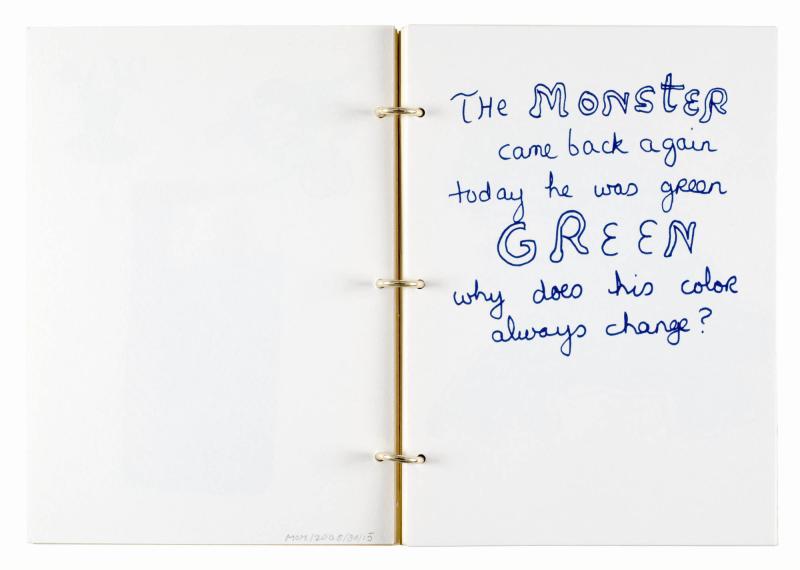 THe MONStER
came back again
today he was green
GREEN
why does his color
always change?